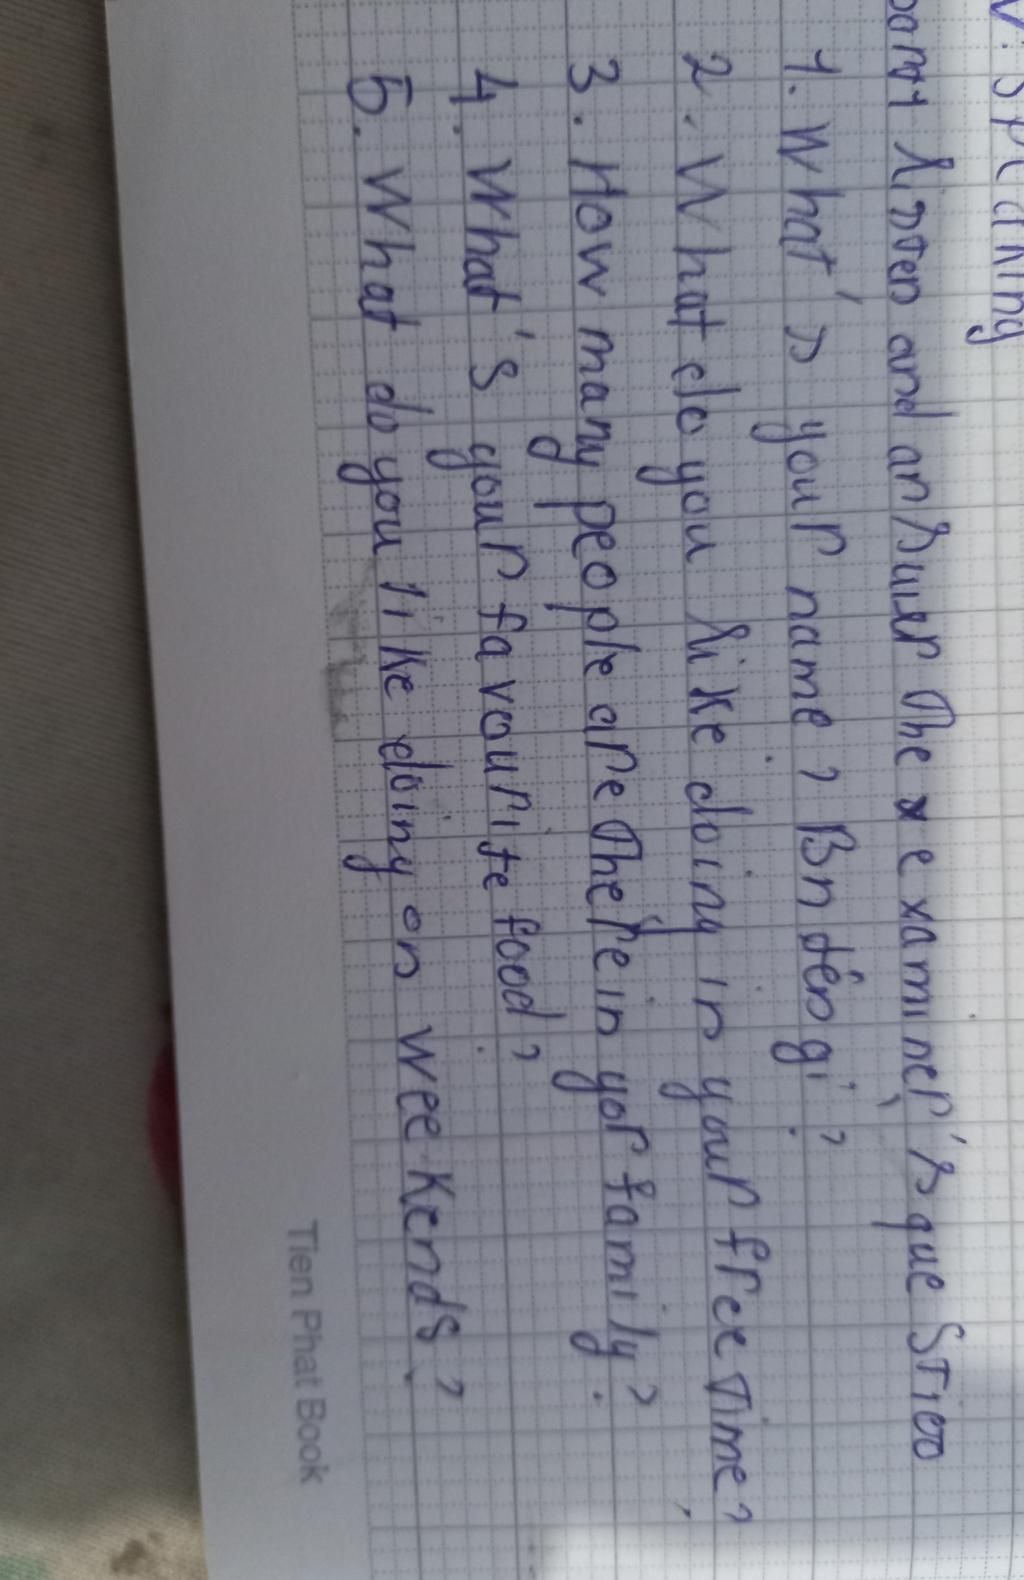 V. Speaking
Part 1 Listen and answer The examiner's question
1. What's your name? Bn tên gì?
2. What do you like doing in your free Time?
3. How many people are there in yor family?
4. What's your favourite food?
5. What do you like doing on weekends?
Tien Phat Book